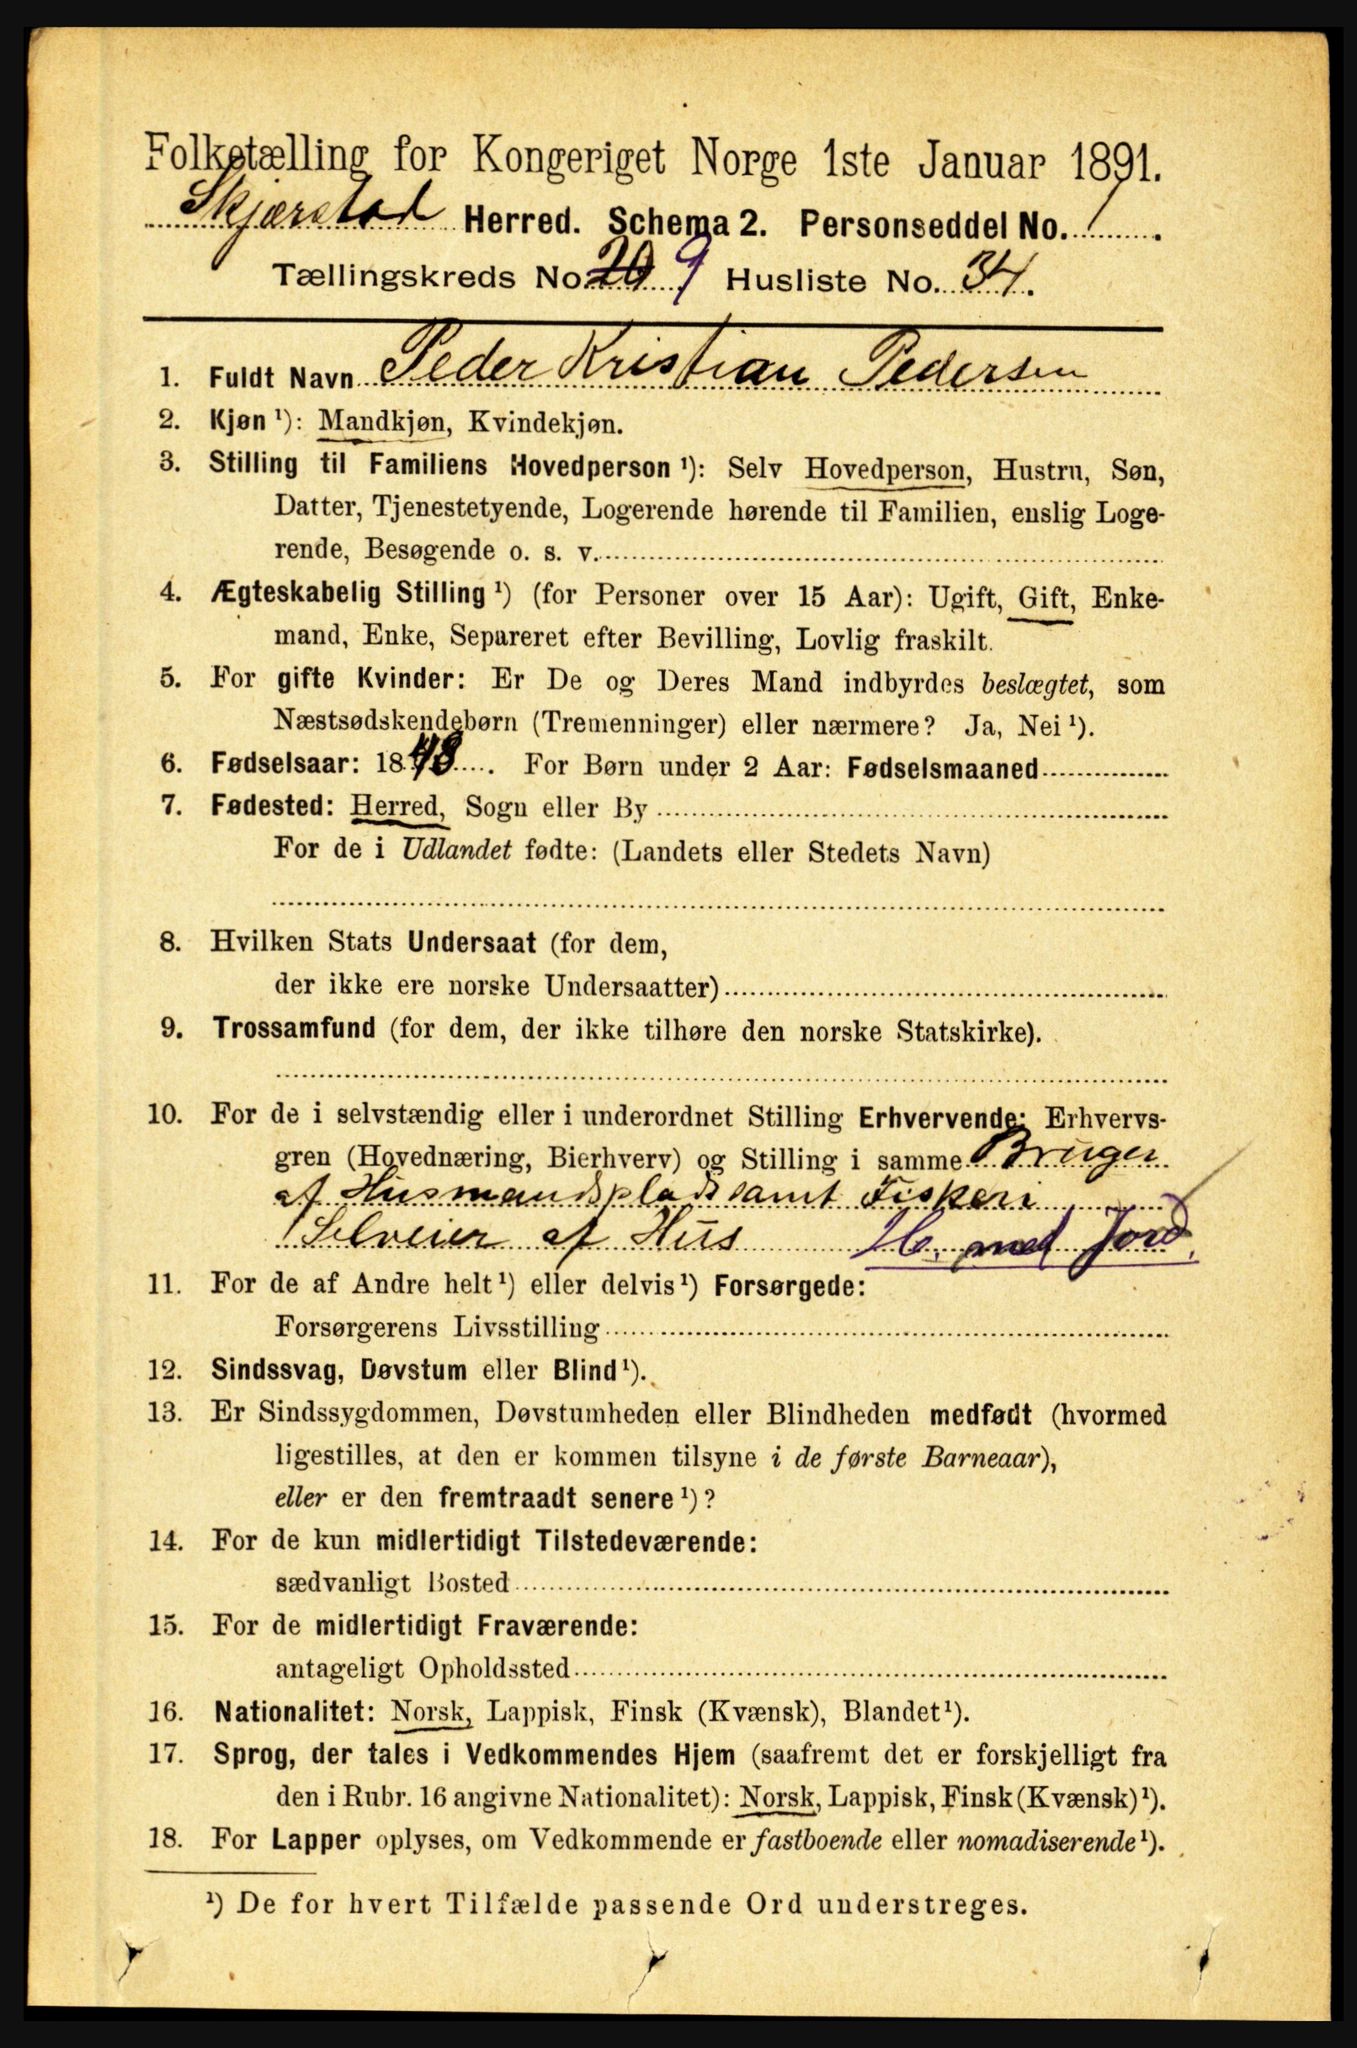 Folketælling for Kongeriget Norge 1ste Januar 1891.
Skjærstad Herred. Schema 2. Personseddel No. 1.
Tællingskreds No. 20 9 Husliste No. 34.
1. Fuldt Navn Peder Kristian Pedersen
2. Kjøn ¹): Mandkjøn, Kvindekjøn.
3. Stilling til Familiens Hovedperson ¹): Selv Hovedperson, Hustru, Søn,
Datter, Tjenestetyende, Logerende hørende til Familien, enslig Loge-
rende, Besøgende o. s. v.
4. Ægteskabelig Stilling ¹) (for Personer over 15 Aar): Ugift, Gift, Enke-
mand, Enke, Separeret efter Bevilling, Lovlig fraskilt.
5. For gifte Kvinder: Er De og Deres Mand indbyrdes beslægtet, som
Næstsødskendebørn (Tremenninger) eller nærmere? Ja, Nei ¹).
6. Fødselsaar: 1848. For Børn under 2 Aar: Fødselsmaaned
7. Fødested: Herred, Sogn eller By
For de i Udlandet fødte: (Landets eller Stedets Navn)
8. Hvilken Stats Undersaat (for dem,
der ikke ere norske Undersaatter)
9. Trossamfund (for dem, der ikke tilhøre den norske Statskirke).
10. For de i selvstændig eller i underordnet Stilling Erhvervende: Erhvervs-
gren (Hovednæring, Bierhverv) og Stilling i samme Bruger
af Husmandsplads samt Fiskeri
Selveier af Hus H. med Jord.
11. For de af Andre helt ¹) eller delvis ¹) Forsørgede:
Forsørgerens Livsstilling
12. Sindssvag, Døvstum eller Blind ¹).
13. Er Sindssygdommen, Døvstumheden eller Blindheden medfødt (hvormed
ligestilles, at den er kommen tilsyne i de første Barneaar),
eller er den fremtraadt senere ¹)?
14. For de kun midlertidigt Tilstedeværende:
sædvanligt Bosted
15. For de midlertidigt Fraværende:
antageligt Opholdssted
16. Nationalitet: Norsk, Lappisk, Finsk (Kvænsk), Blandet ¹).
17. Sprog, der tales i Vedkommendes Hjem (saafremt det er forskjelligt fra
den i Rubr. 16 angivne Nationalitet): Norsk, Lappisk, Finsk (Kvænsk) ¹).
18. For Lapper oplyses, om Vedkommende er fastboende eller nomadiserende ¹).
¹) De for hvert Tilfælde passende Ord understreges.